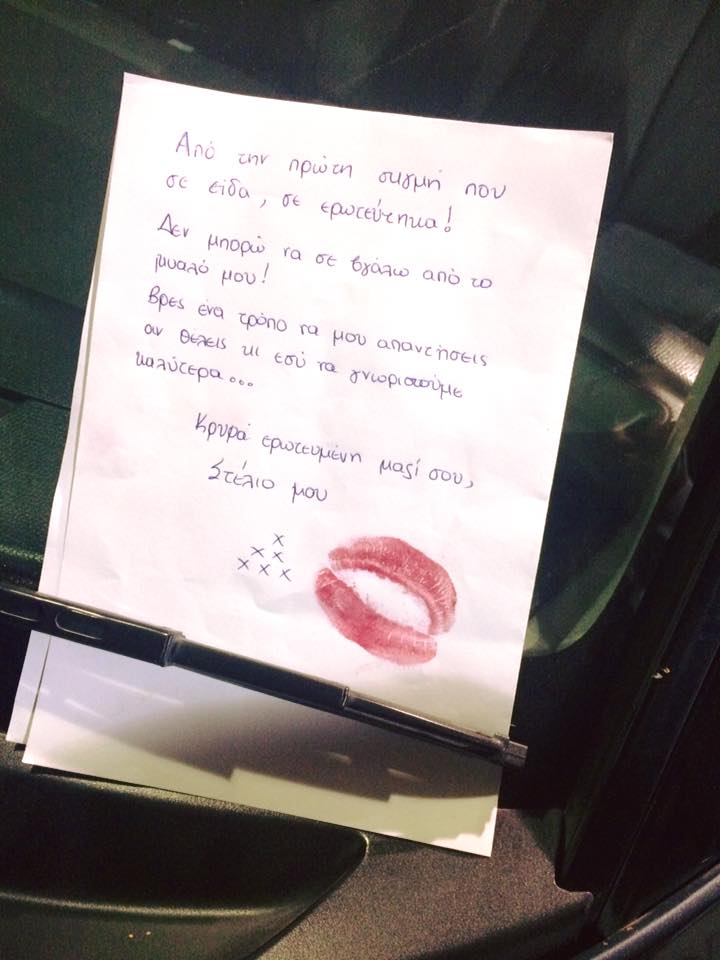 Από την πρώτη στιγμή που
σε είδα, σε ερωτεύτηκα!
Δεν μπορώ να σε βγάλω από το
μυαλό μου!
Βρες ένα τρόπο να μου απαντήσεις
αν θέλεις κι εσύ να γνωριστούμε
καλύτερα...
Κρυφά ερωτευμένη μαζί σου,
Στέλιο μου
x
x x
x x x